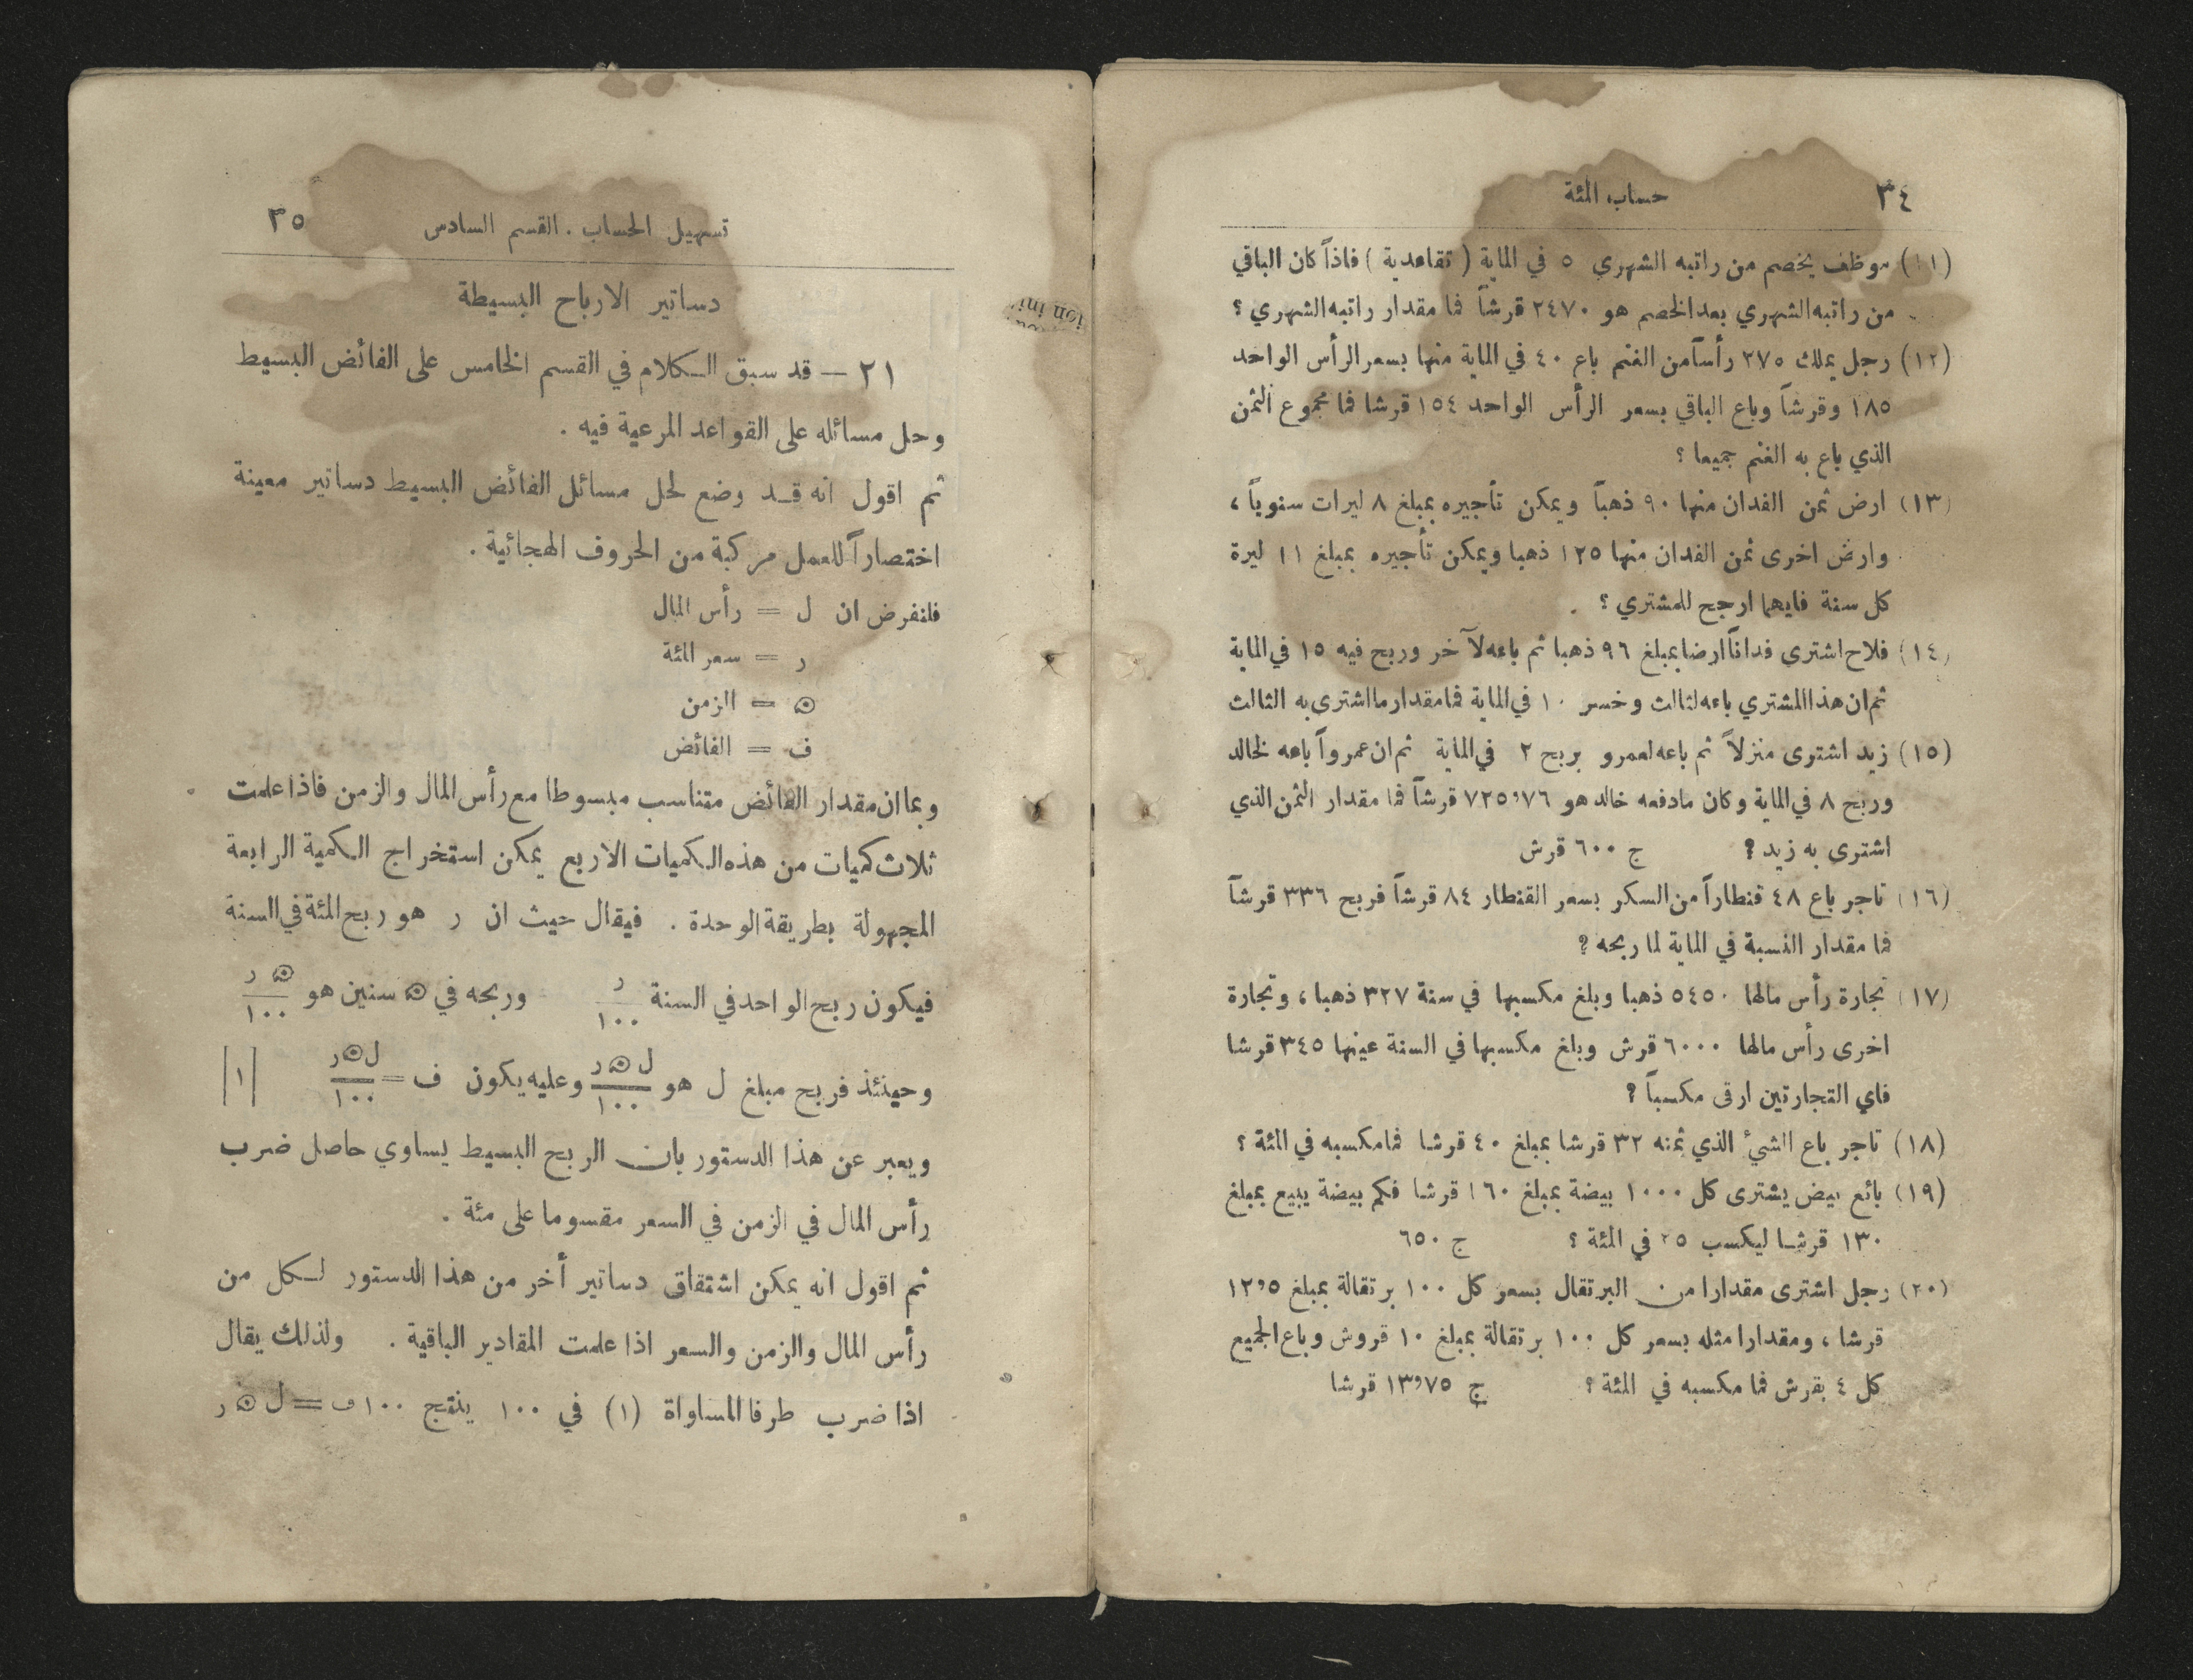 ٣٤
حساب المئة
(١١) موظف يخصم من راتبه الشهري ٥ في الماية (تقاعدية) فاذاً كان الباقي
من راتبه الشهري بعد الخصم هو ٢٤٧٠ قرشاً فما مقدار راتبه الشهري ؟
(١٢) رجل يملك ٢٧٥ رأساً من الغنم باع ٤٠ في الماية منها بسعر الرأس الواحد
١٨٥ وقرشاً وباع الباقي بسعر الرأس الواحد ١٥٤ قرشا فما مجموع الثمن
الذي باع به الغنم جميعا ؟
(١٣) ارض ثمن الفدان منها ٩٠ ذهباً ويمكن تأجيره بمبلغ ٨ ليرات سنوياً ،
وارض اخرى ثمن الفدان منها ١٢٥ ذهبا ويمكن تأجيره بمبلغ ١١ ليرة
كل سنة فايهما ارجح للمشتري ؟
(١٤) فلاح اشترى فداناً ارضا بمبلغ ٩٦ ذهبا ثم باعه لآخر وربح فيه ١٥ في الماية
ثم ان هذا المشتري باعه لثالث وخسر ١٠ في الماية فما مقدار ما اشترى به الثالث
(١٥) زيد اشترى منزلاً ثم باعه لعمرو بربح ٢ في الماية ثم ان عمرواً باعه لخالد
وربح ٨ في الماية وكان مادفعه خالد هو ٧٢٥٬٧٦ قرشاً فما مقدار الثمن الذي
اشترى به زيد ؟ ج ٦٠٠ قرش
(١٦) تاجر باع ٤٨ قنطاراً من السكر بسعر القنطار ٨٤ قرشاً فربح ٣٣٦ قرشاً
فما مقدار النسبة في الماية لما ربحه ؟
(١٧) تجارة رأس مالها ٥٤٥٠ ذهبا وبلغ مكسبها في سنة ٣٢٧ ذهبا ، وتجارة
اخرى رأس مالها ٦٠٠٠ قرش وبلغ مكسبها في السنة عينها ٣٤٥ قرشا
فاي التجارتين ارقى مكسباً ؟
(١٨) تاجر باع الشئ الذي ثمنه ٣٢ قرشا بمبلغ ٤٠ قرشا فما مكسبه في المئة ؟
(١٩) بائع بيض يشترى كل ١٠٠٠ بيضة بمبلغ ١٦٠ قرشا فكم بيضة يبيع بمبلغ
١٣٠ قرشا ليكسب ٢٥ في المئة ؟ ج ٦٥٠
(٢٠) رجل اشترى مقدارا من البرتقال بسعر كل ١٠٠ برتقالة بمبلغ ١٢٬٥
قرشا ، ومقدارا مثله بسعر كل ١٠٠ برتقالة بمبلغ ١٠ قروش وباع الجميع
كل ٤ بقرش فما مكسبه في المئة ؟ ج ١٣٬٧٥ قرشا
تسهيل الحساب . القسم السادس
٣٥
دساتير الارباح البسيطة
٢١ — قد سبق الكلام في القسم الخامس على الفائض البسيط
وحل مسائله على القواعد المرعية فيه .
ثم اقول انه قد وضع لحل مسائل الفائض البسيط دساتير معينة
اختصاراً للعمل مركبة من الحروف الهجائية .
فلنفرض ان ل = رأس المال
ر = سعر المئة
ه = الزمن
ف = الفائض
وبما ان مقدار الفائض متناسب مبسوطا مع رأس المال والزمن فاذا علمت
ثلاث كميات من هذه الكميات الاربع يمكن استخراج الكمية الرابعة
المجهولة بطريقة الوحدة . فيقال حيث ان ر هو ربح المئة في السنة
فيكون ربح الواحد في السنة ر/١٠٠ وربحه في ه سنين هو ه ر/١٠٠
وحينئذ فربح مبلغ ل هو ل ه ر/١٠٠ وعليه يكون ف = ل ه ر/١٠٠ |١|
ويعبر عن هذا الدستور بان الربح البسيط يساوي حاصل ضرب
رأس المال في الزمن في السعر مقسوما على مئة .
ثم اقول انه يمكن اشتقاق دساتير أخر من هذا الدستور لكل من
رأس المال والزمن والسعر اذا علمت المقادير الباقية . ولذلك يقال
اذا ضرب طرفا المساواة (١) في ١٠٠ ينتج ١٠٠ ف = ل ه ر